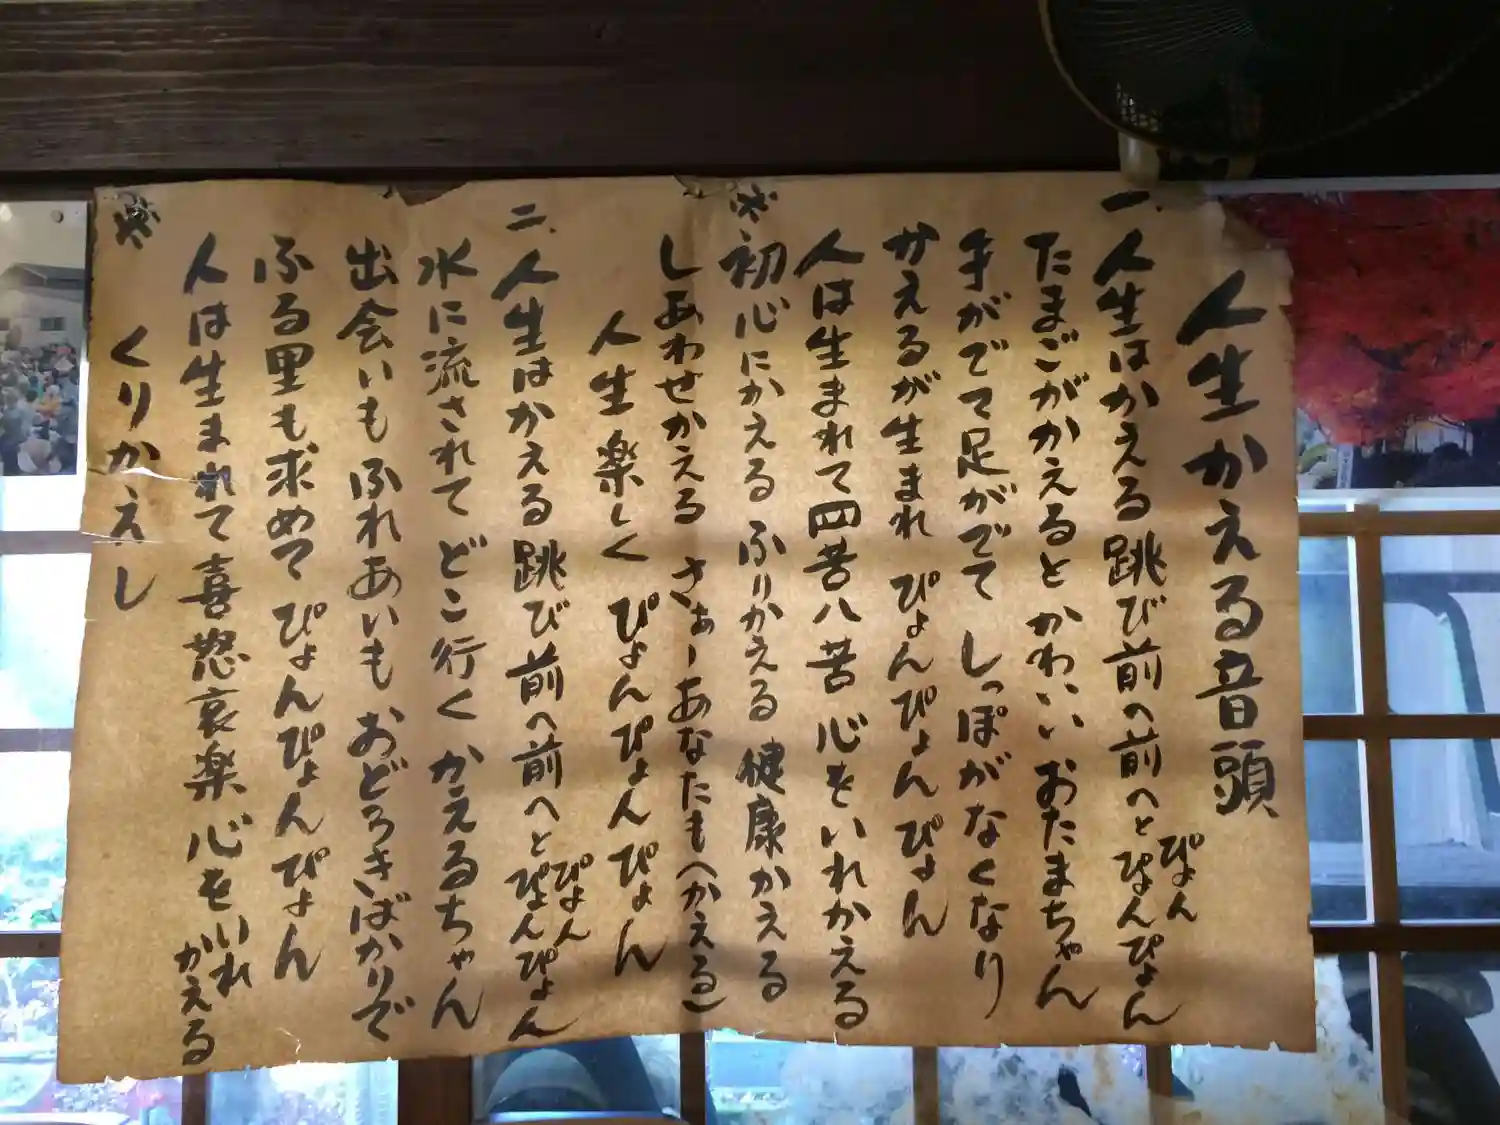 人生かえる音頭
一、人生はかえる跳び前へ前へとぴょんぴょんぴょん
たまごがかえるとかわいいおたまちゃん
手がでて足がでて しっぽがなくなり
かえるが生まれ ぴょんぴょんぴょん
人は生まれて四苦八苦 心をいれかえる
※初心にかえる ふりかえる 健康かえる
しあわせかえる さぁーあなたも(かえる)
人生楽しく ぴょんぴょんぴょん
二、人生はかえる跳び前へ前へとぴょんぴょんぴょん
水に流されて どこ行く かえるちゃん
出会いもふれあいも おどろきばかりで
ふる里も求めて ぴょんぴょんぴょん
人は生まれて喜怒哀楽 心をいれかえる
※ くりかえし